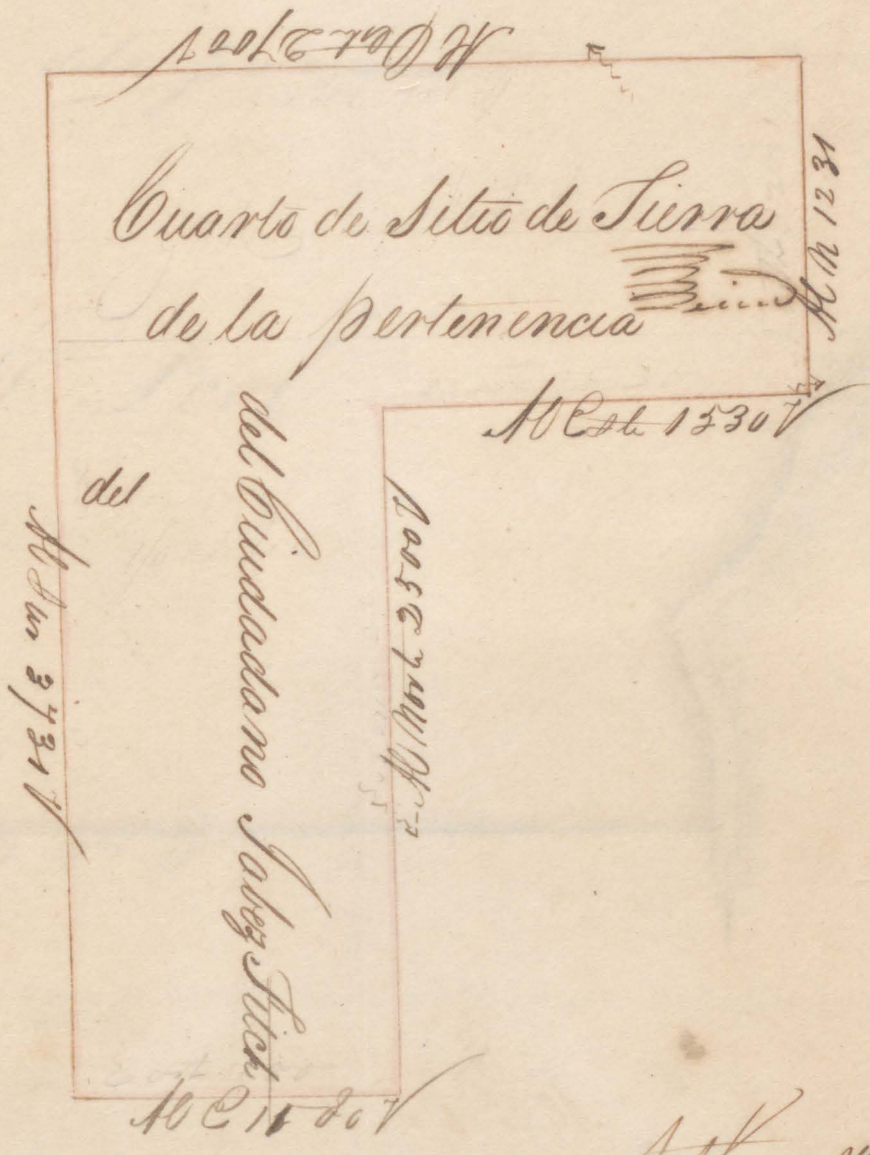 Al Oest 2700 V
Cuarto de Sitio de Tierra
de la pertenencia
Al N 1231
Al Este 1530 V
del
del Ciudadano Jabez Fitch
Al Norte 2500 V
Al Sur 3731 V
Al E 1180 V